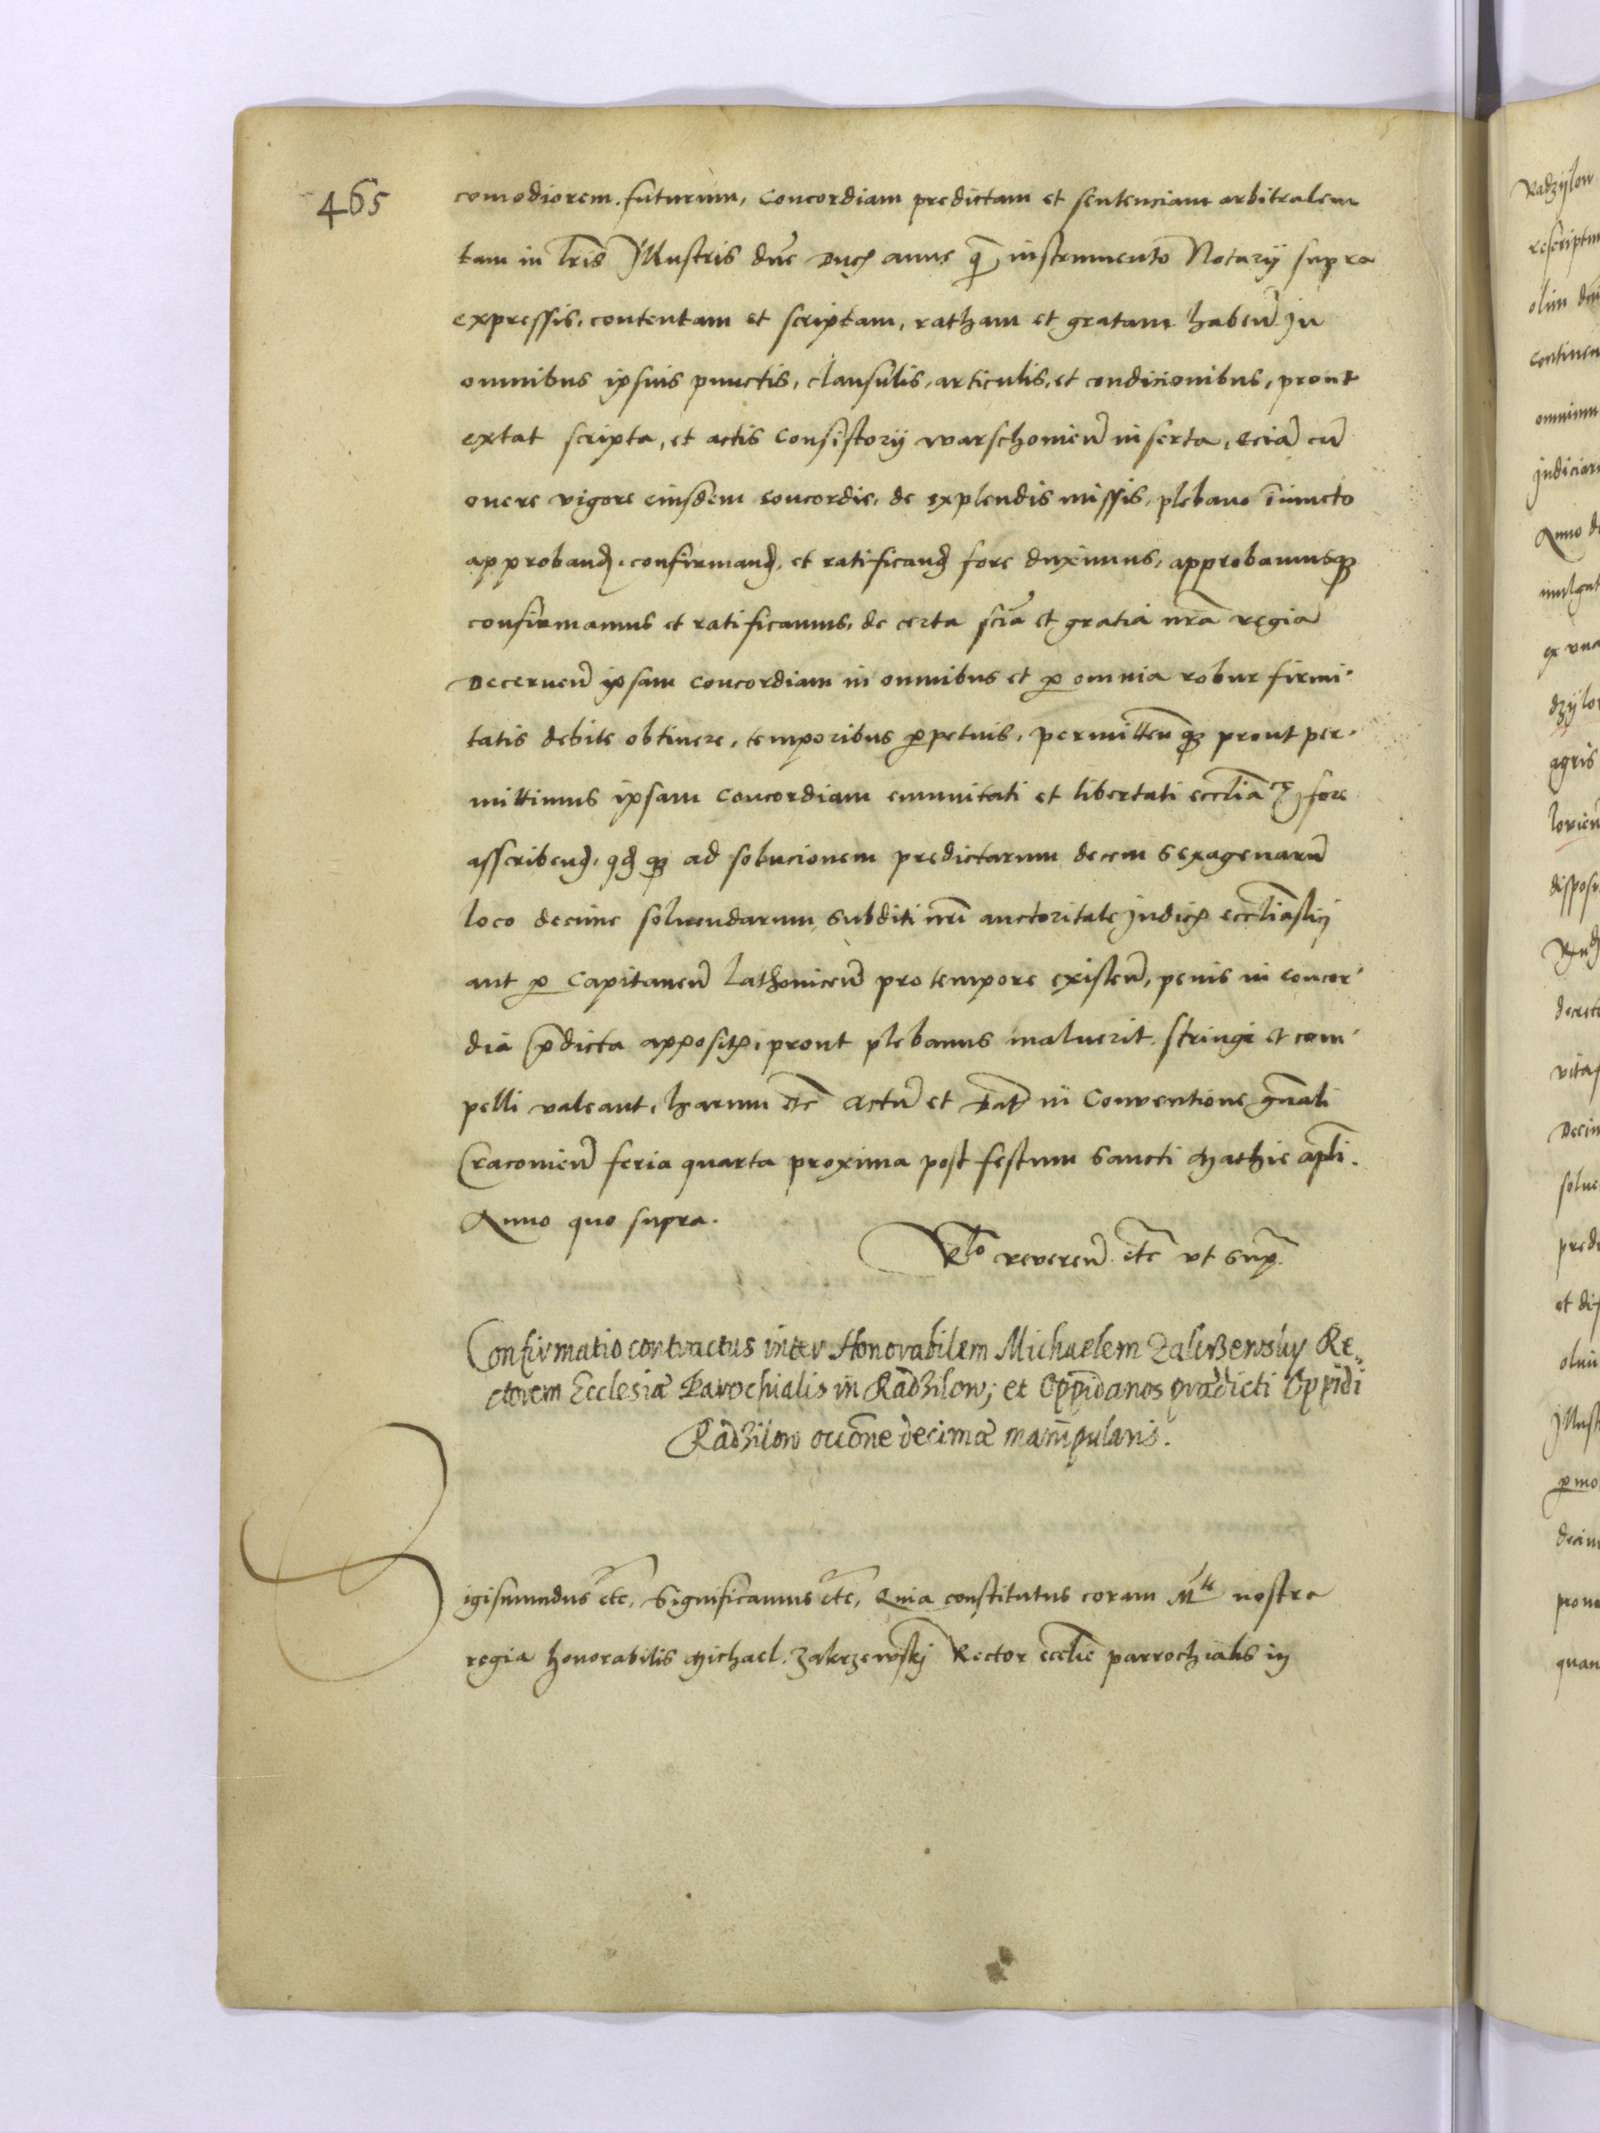 465
comodiorem. futurum, Concordiam predictam et sentenciam arbitralem
tam in lrīs Illustris dnē Ducꝭ anne ꝗ̄ instrumento Notarij supra
expressis, contentam et scriptam, ratham et gratam habeñ in
omnibus ipsius punctis, clausulis, articulis, et condicionibus, prout
extat scripta, et actis Consistorij warschouieñ inserta, eciā cū
onere vigore eiusdem concordie, de explendis missis, plebano iniuncto
approbanđ, confirmanđ, et ratificanđ fore duximus, approbamusqꝫ
confirmamus et ratificamus, de certa scīa et gratia nrā regia
Decerneñ ipsam concordiam in omnibus et ꝑ omnia robur firmi-
tatis debite obtinere, temporibus ꝑpetuis, permitteñ qꝫ prout per-
mittimus ipsam Concordiam emunitati et libertati ecclīa fore
asscribenđ, qđ qꝫ ad solucionem predictarum decem sexagenarū
loco decime soluendarum, subditi nrī auctoritate Judicꝭ ecclīastici
aut ꝑ Capitaneū lathouiceñ pro tempore existeñ, penis in concor-
dia p̄dicta appositꝭ, prout plebanus maluerit. stringi et com-
pelli valeant, harum etc̄ Actū et Dat̄ in Conuentione gn̄ali
Cracouieñ feria quarta proxima post festum Sancti Mathie apli.
Anno quo supra.
Rlo reuereñ etc̄ vt sup̄.
Confirmatio contractus inter Honorabilem Michaelem Zakrzewsky Re-
ctorem Ecclesiæ Parochialis in Radzilow; et Oppidanos prædicti Oppidi
Radzilow occōne decimæ manipularis.
Sigismundus etc̄, Significamus etc̄, Quia constitutus coram Mte nostra
regia honorabilis Michael Zakrzewskj Rector ecclīe parrochialis in
Radzijlow
rescriptum
olim
continen
omnium
Judiciar
Anno
ex vna
agris
decret
Decim
solue
pred
et dis
olim
Illust